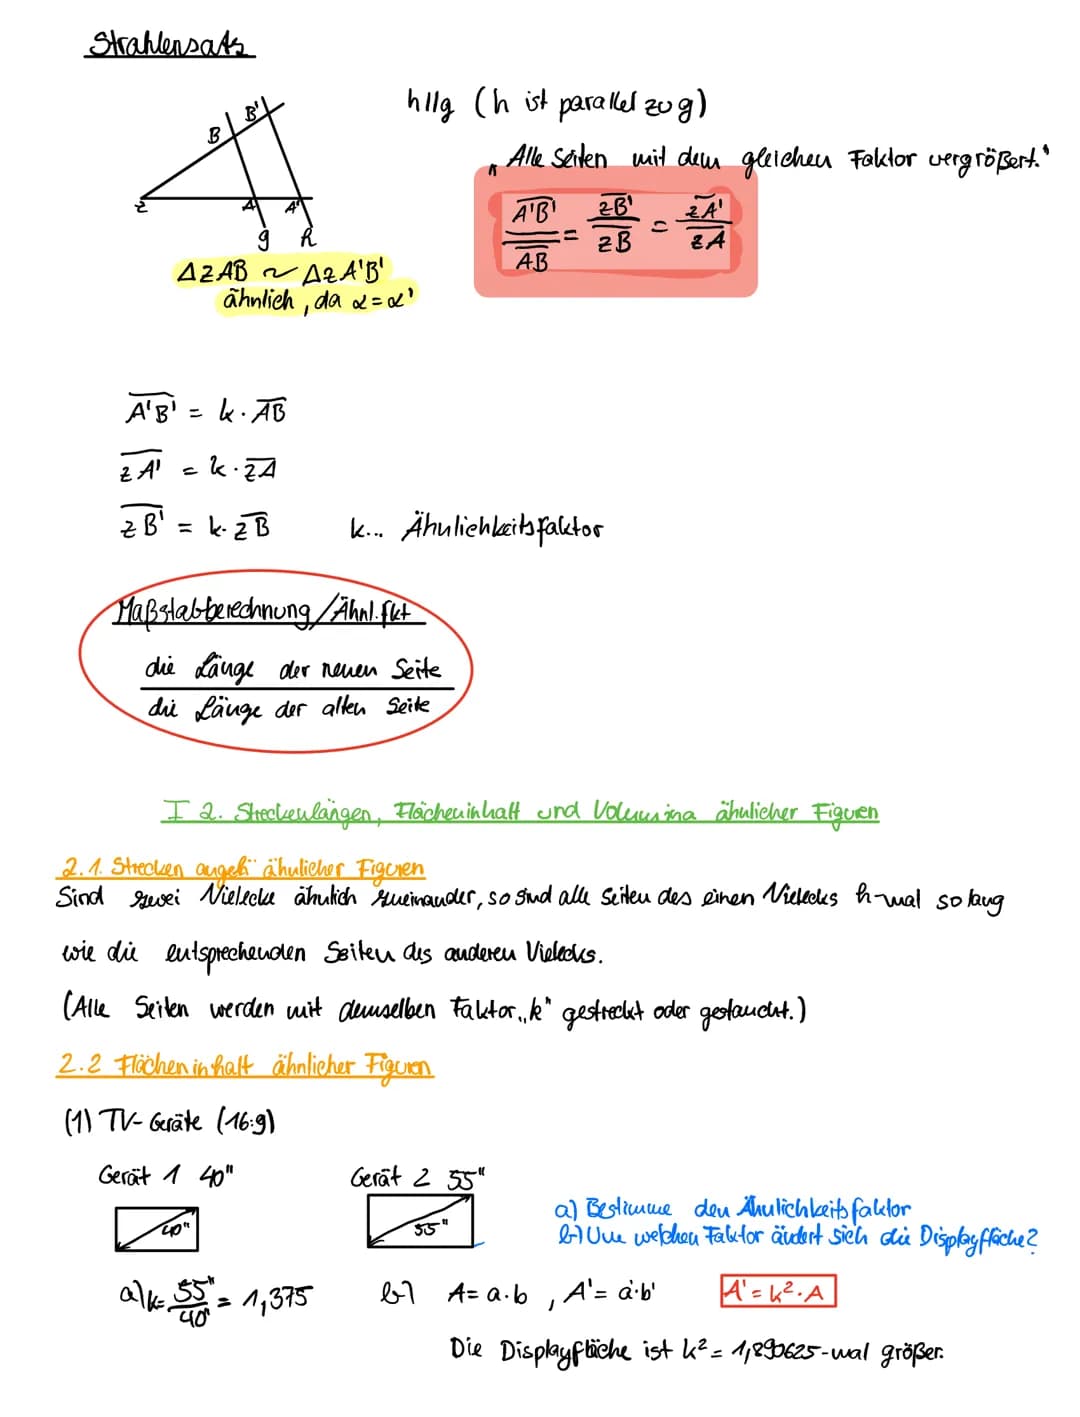 Strahlensatz
h||g (h ist parallel zu g)
B B'
Z A A'
g h
"Alle Seiten mit dem gleichen Faktor vergrößert."
A'B'/AB = ZB'/ZB = ZA'/ZA
ΔZAB ~ ΔZA'B'
ähnlich, da α = α'
A'B' = k · AB
ZA' = k · ZA
ZB' = k · ZB k... Ähnlichkeitsfaktor
Maßstabberechnung/Ähnl.fkt
die Länge der neuen Seite
die Länge der alten Seite
I 2. Streckenlängen, Flächeninhalt und Volumina ähnlicher Figuren
2.1. Strecken ähnlicher Figuren
Sind zwei Vielecke ähnlich zueinander, so sind alle Seiten des einen Vielecks k-mal so lang
wie die entsprechenden Seiten des anderen Vielecks.
(Alle Seiten werden mit demselben Faktor „k" gestreckt oder gestaucht.)
2.2 Flächeninhalt ähnlicher Figuren
(1) TV-Geräte (16:9)
Gerät 1 40" Gerät 2 55"
40" 55"
a) Bestimme den Ähnlichkeitsfaktor
b) Um welchen Faktor ändert sich die Displayfläche?
a) k = 55"/40" = 1,375 b) A = a·b , A' = a'·b' A' = k²·A
Die Displayfläche ist k² = 1,890625-mal größer.